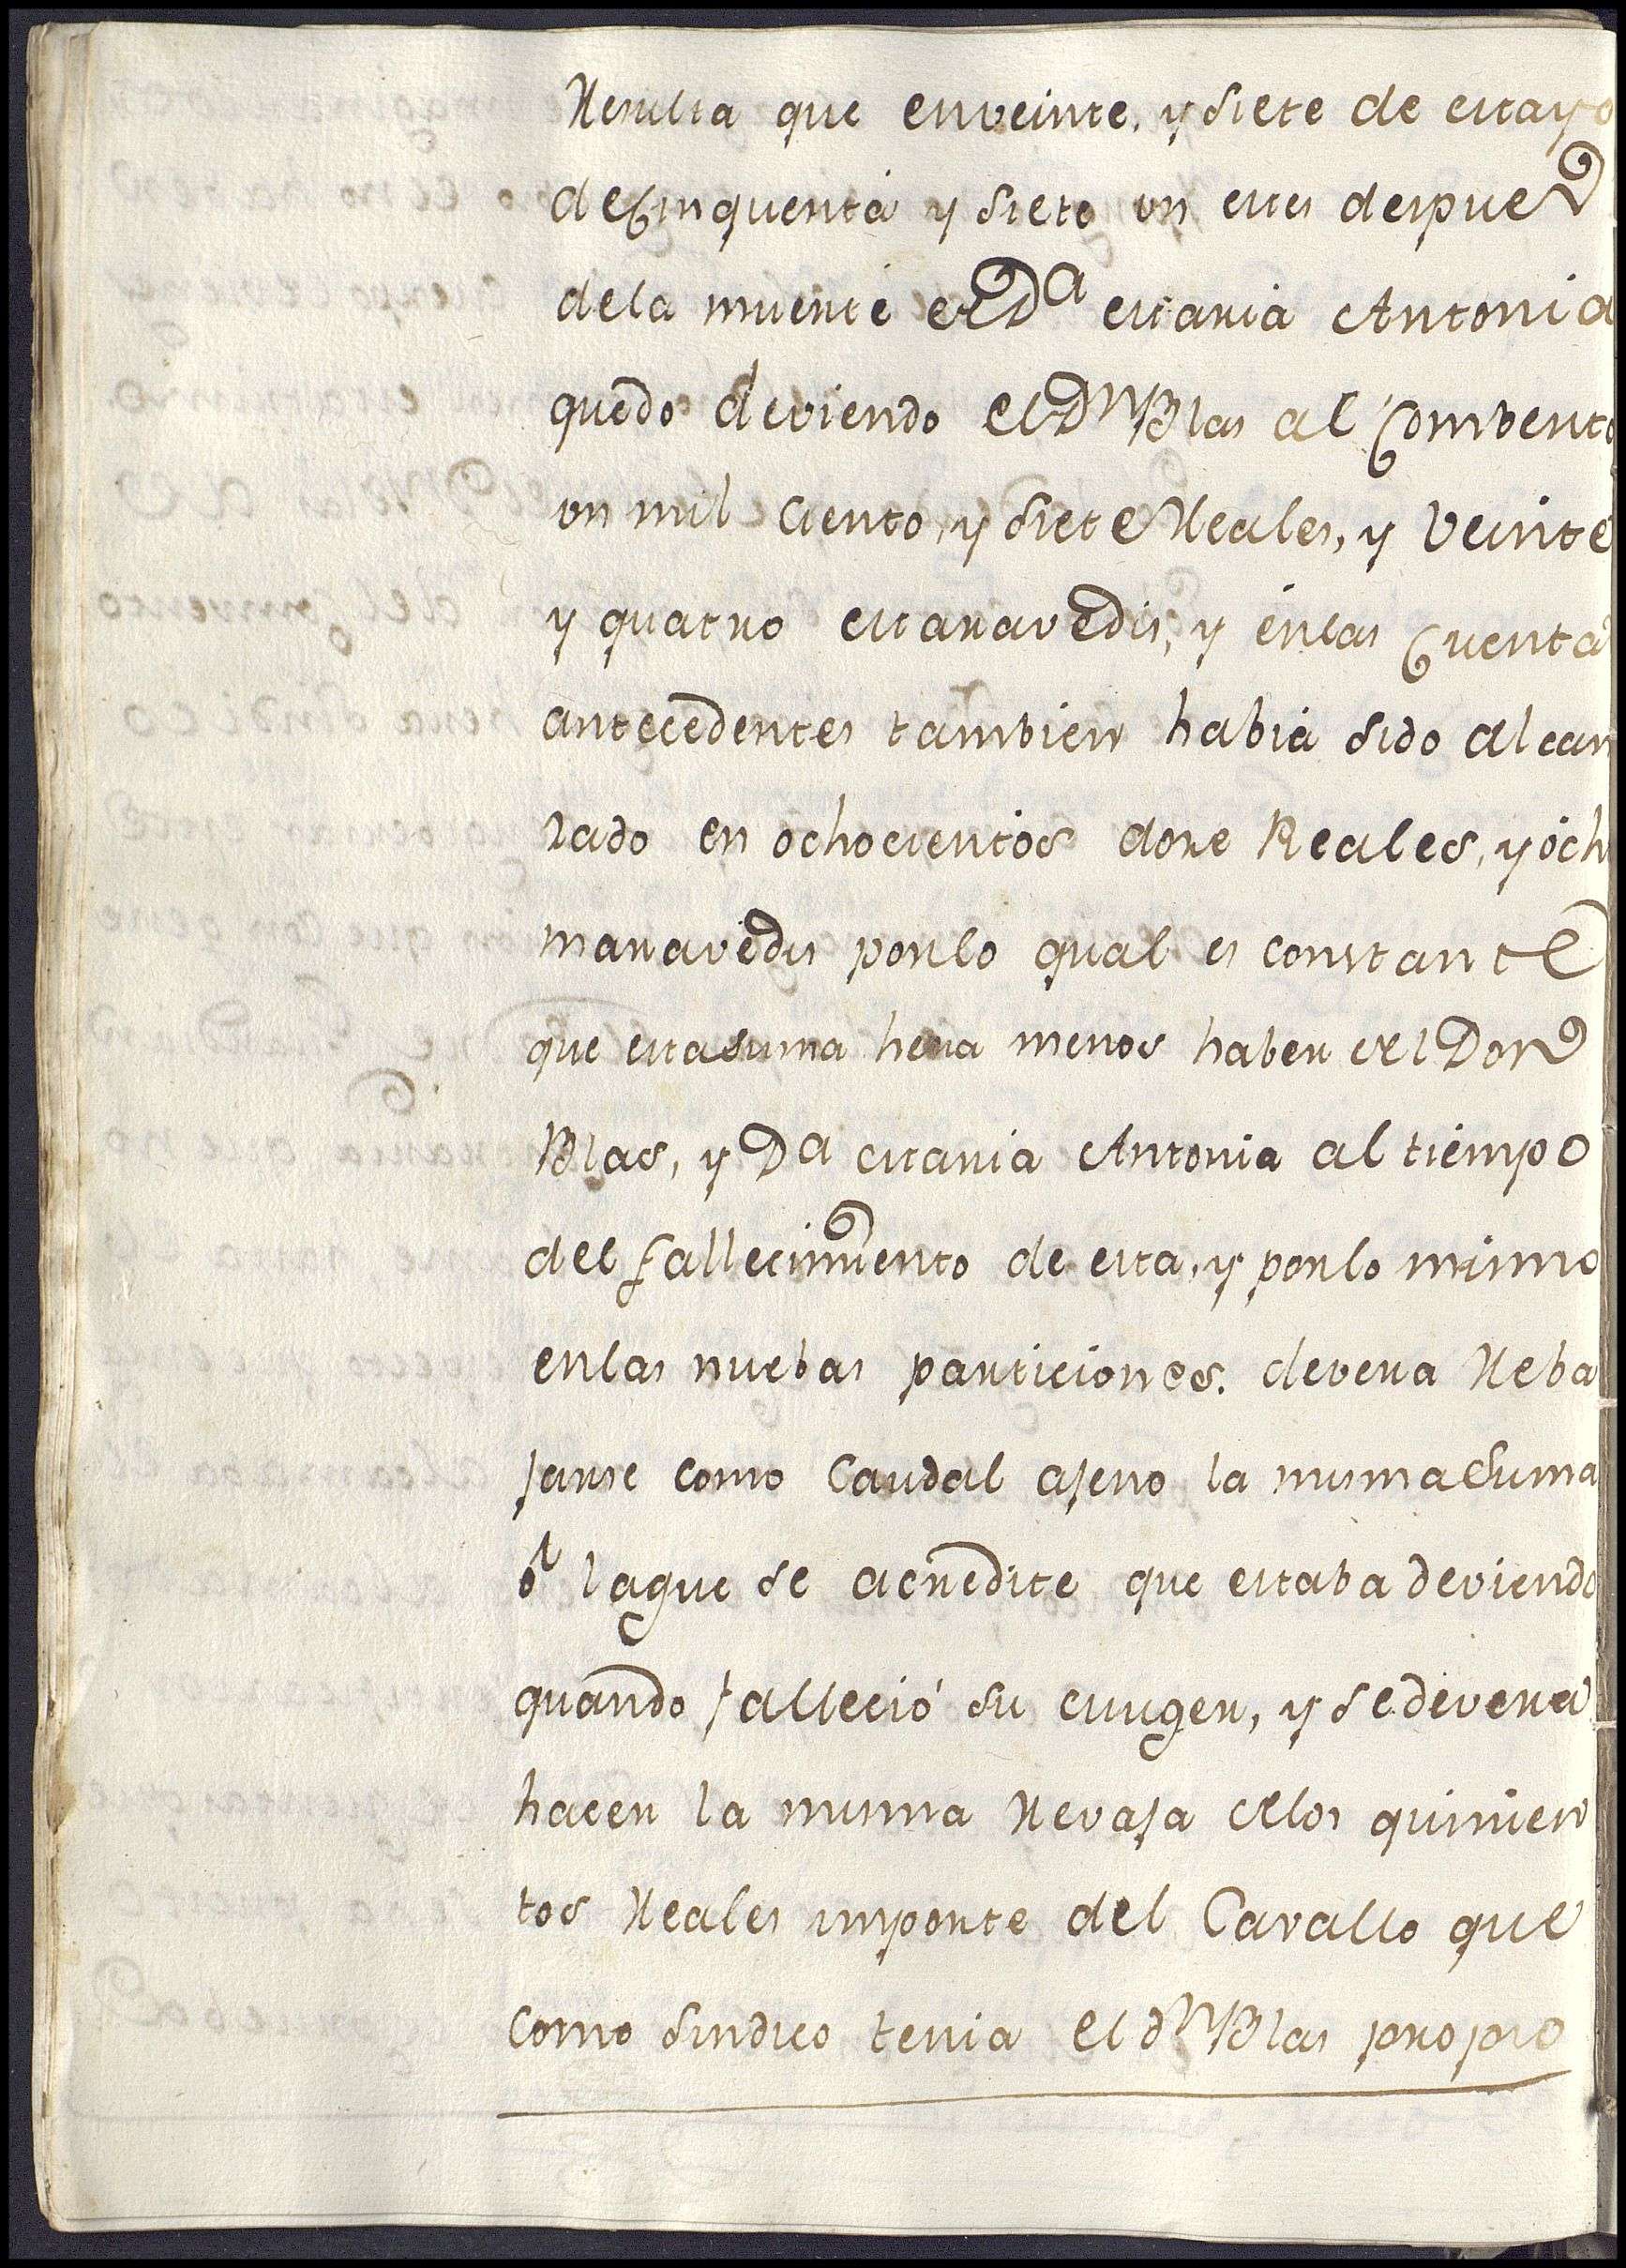 Resulta que en veinte, y siete de Mayo
de Cinquenta y siete un mes despues
de la muerte de Dª Maria Antonia
quedo deviendo el Dn Blas al Combento
un mil ciento, y siete Reales, y veinte
y quatro Maravedis, y en las Cuentas
antecedentes tambien habia sido alcan
zado en ochocientos doze Reales, y och
maravedis por lo qual es constante
que esta suma hera menos haber del Don
Blas, y Dª Maria Antonia al tiempo
del fallecimiento de esta, y por lo mismo
en las nuebas particiones. devera Reba
jarse como Caudal ajeno la misma Suma
ó la que se acredite que estaba deviendo
quando falleció su Muger, y se devera
hacer la misma Revaja de los quinien
tos Reales importe del Cavallo que
como Sindico tenia el dn Blas propio